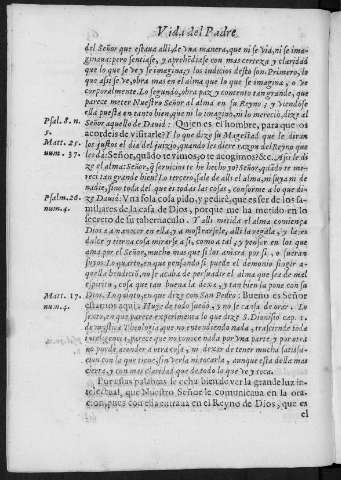 Vida del Padre
del Señor que estaua alli, de vna manera, que ni se via, ni se ima-
ginaua: pero sentiase, y aprehēdiase con mas certeza y claridad
que lo que se ve y se imagina; y los indicios desto son. Primero, lo
que assi se ve, obra mas en el alma que lo que se imagina, o ve
corporalmente. Lo segundo, obra paz y contento tan grande, que
parece meter Nuestro Señor al alma en su Reyno; y viendose
ella puesta en tanto bien, que ni lo imaginó, ni lo mereció, dize al
Psal. 8. n.
5.
Señor, aquello de Dauid: Quien es el hombre, para que os
acordeis de visitarle? Y lo que dize su Magestad que le diran
Matt. 25.
num. 37.
los justos el dia del juizio, quando les diere razon del Reyno
les dá: Señor, quādo te vimos, o te acogimos? &c. Assi le di-
ze el alma: Señor, q̄ seruicios te he hecho yo? Señor, quādo me-
reci yo tan grande bien? Lo tercero, sale de alli el alma, ni suya ni de
nadie, sino toda del que es todas las cosas, conforme a lo que di-
Psalm. 26.
num. 4.
ze Dauid: Vna sola cosa pido, y pedirè, que es ser de los fa-
miliares de la casa de Dios, porque me ha metido en lo
secreto de su tabernaculo. Y alli metida el alma comiença
Dios a nanecer en ella, y a mostrarsele, alli la regala, y la es
dulce y tierna cosa mirarle a si, como a tal, y pensar en los que
ama por el Señor, mucho mas que si los amara por si, o fueran
suyos. Lo quarto, en que pensando si se puede el demonio fingir a
aquella bendicion, no se acaba de persuadir el alma que sea de mal
espiritu, cosa que tan buena la dexa, y tan bien la pone con su
Matt. 17.
num. 4.
Dios. Lo quinto, en que dize con San Pedro: Bueno es Señor
estarnos aqui. Huye de todo sueño, y no se cansa de orar. Lo
sexto, en que parece experimenta lo que dize S. Dionisio cap. 1.
de mystica Theologia, que no entendiendo nada, trasciende toda
inteligencia, parece que no conoce nada por vna parte, y por otra
no puede atender a otra cosa, ni dexar de tener mucha satisfa-
cion con la que tiene, sin verla ni tocarla, aunque esta della mas
cierta, y con mas claridad que de todo lo que ve y toca.
Por estas palabras se echa bien de ver la grande luz in-
telectual, que Nuestro Señor le comunicaua en la ora-
cion, pues con ella entraua en el Reyno de Dios, que es
el